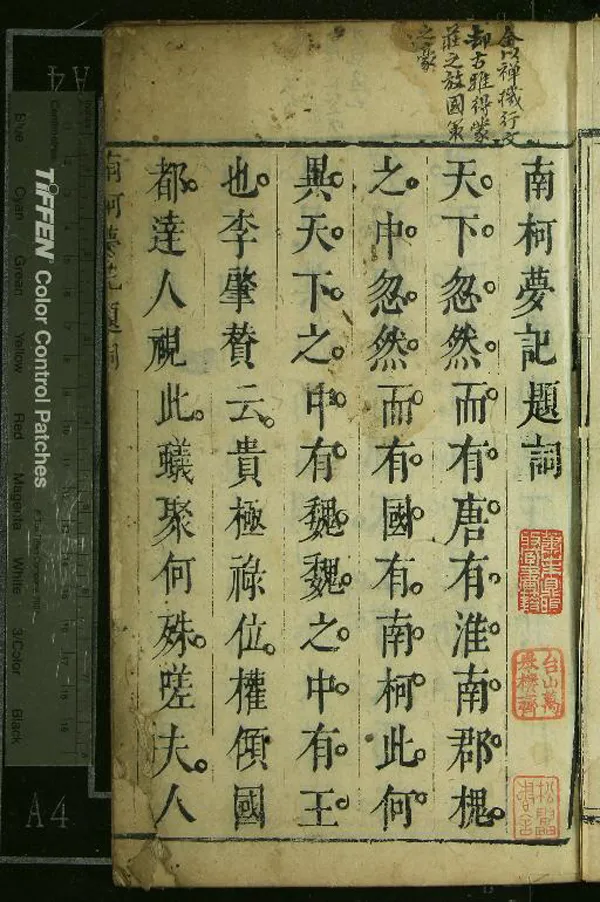 全以禪機行文
却古雅得蒙
莊之放國策
之豪
南柯夢記題詞
天下忽然而有唐有淮南郡槐
之中忽然而有國有南柯此何
異天下之中有魏魏之中有王
也李肇贊云貴極祿位權傾國
都達人視此蟻聚何殊嗟夫人
題詞
TIFFEN Color Control Patches
Centimetres
Blue Cyan Green Yellow Red Magenta White 3/Color Black
A4
A4